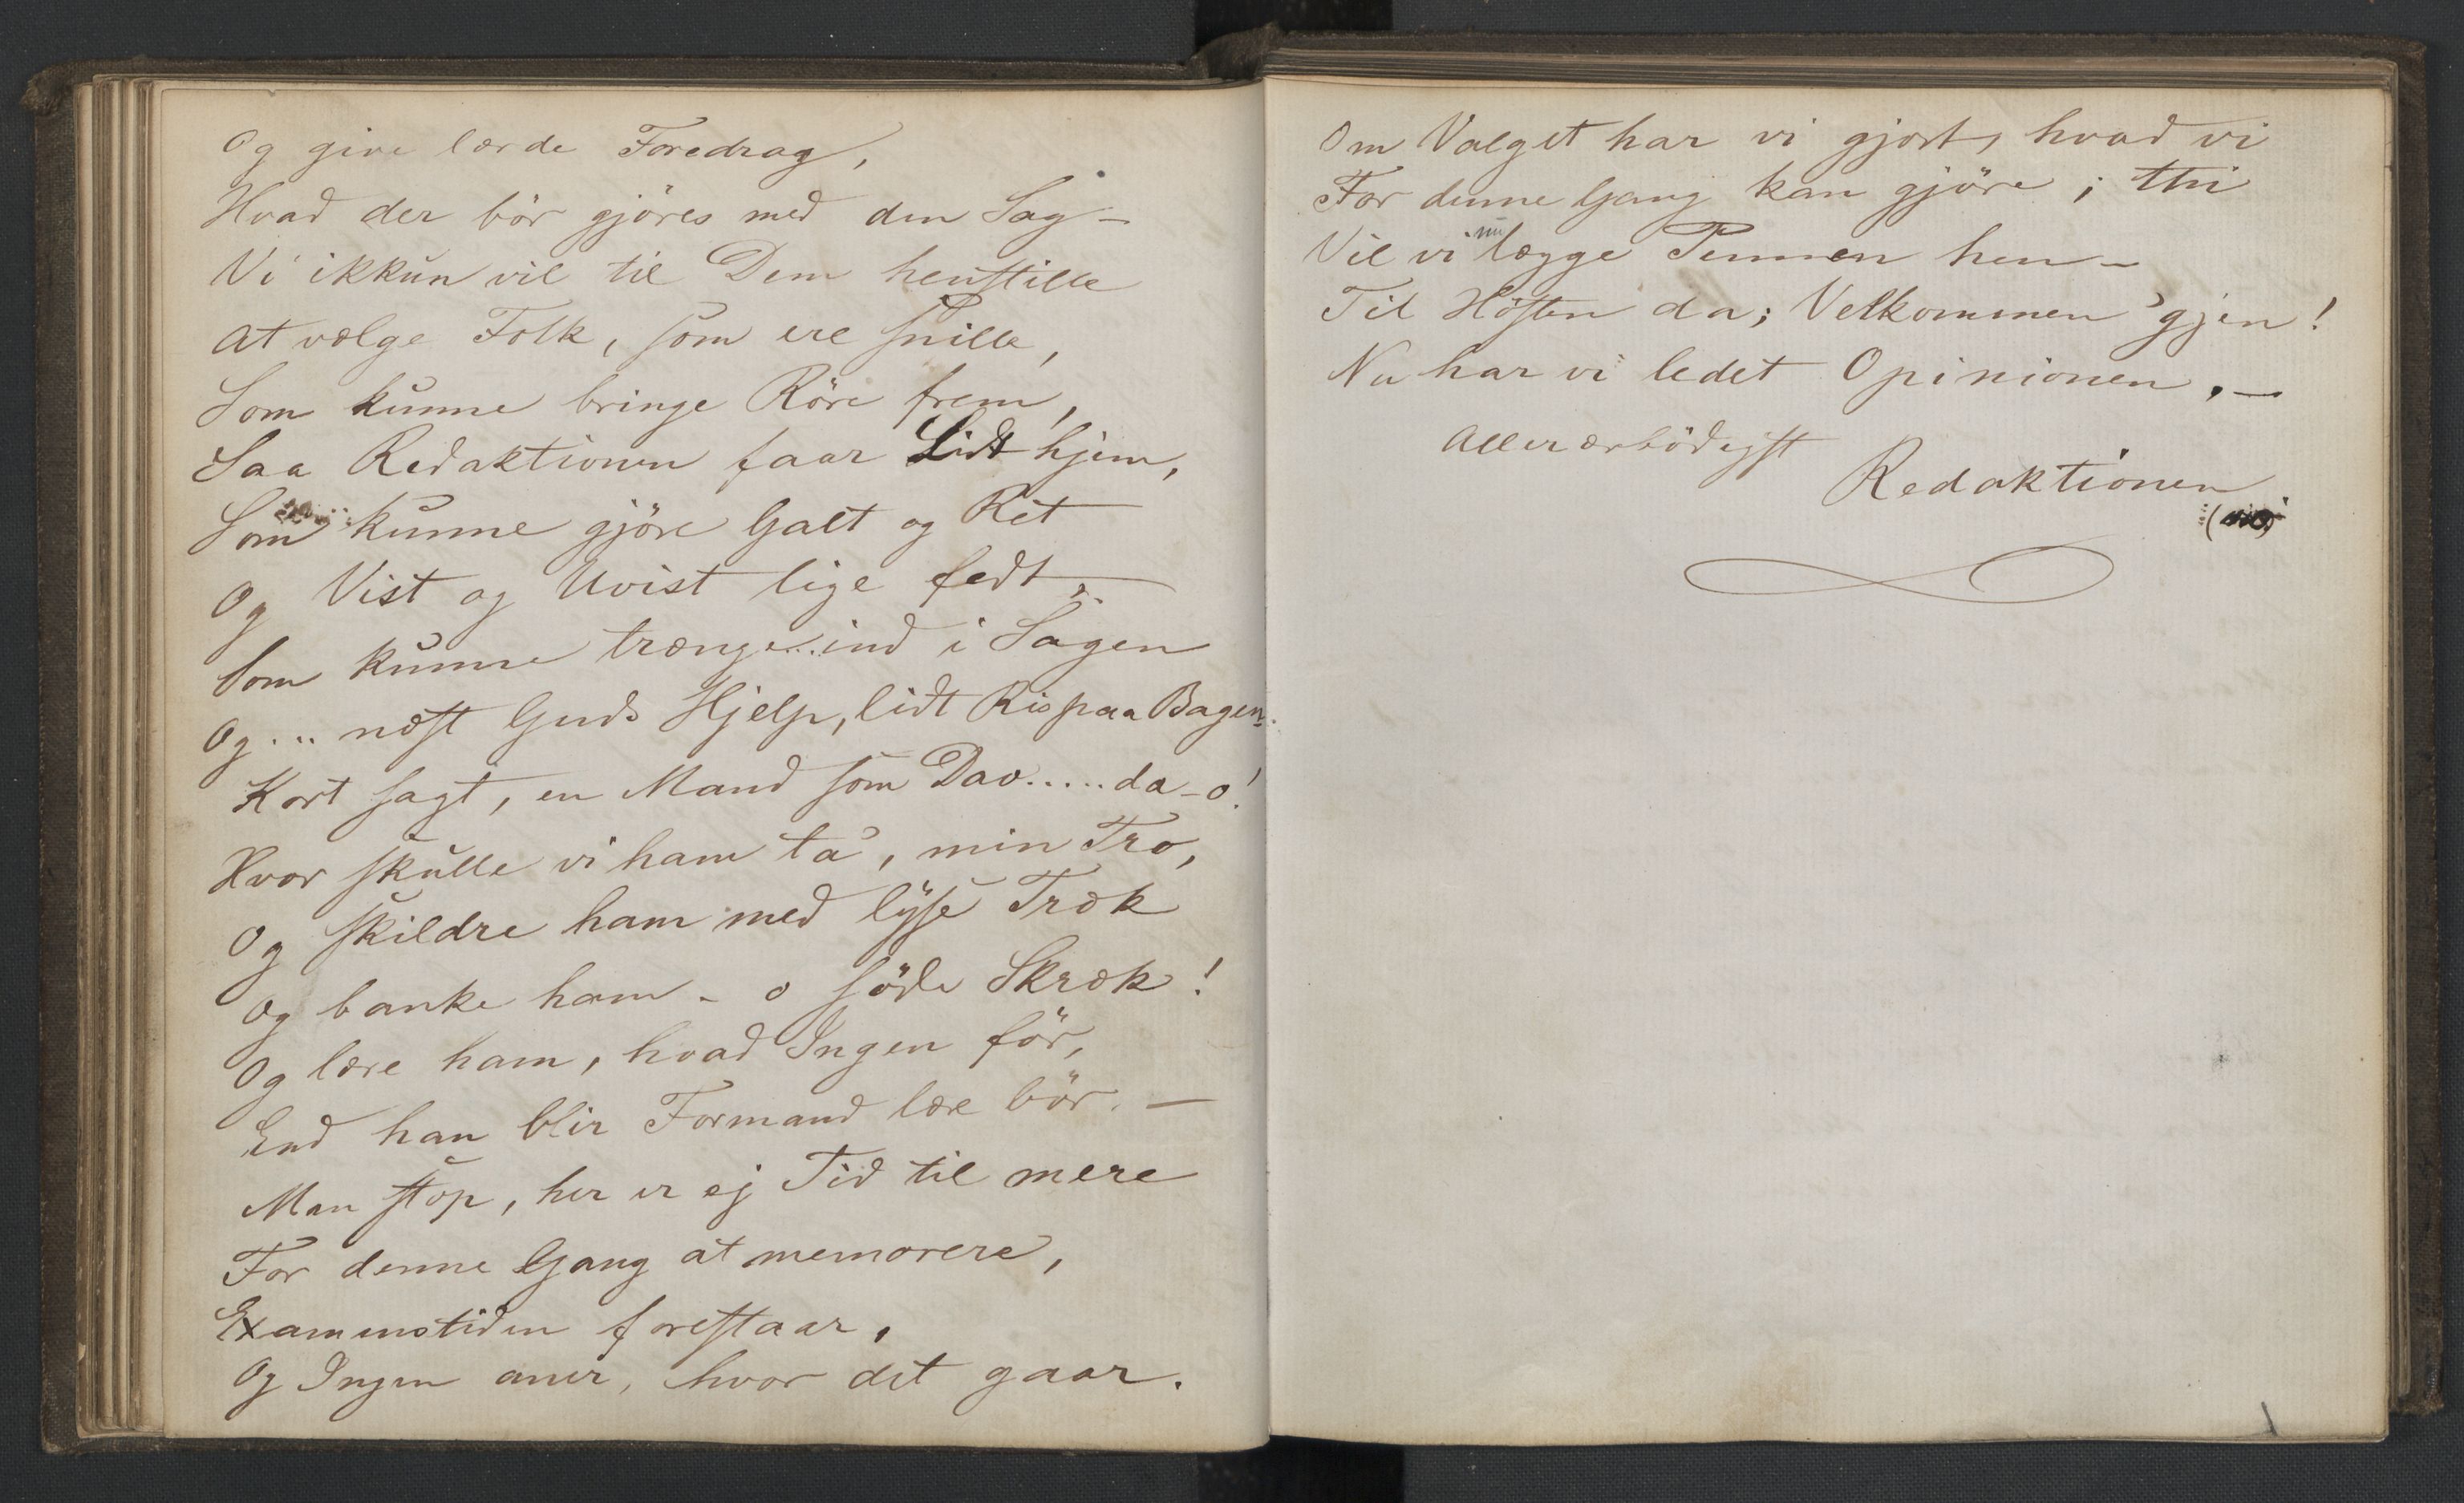 Og give lærde Foredrag,
Hvad der bör gjöres med den Sag –
Vi ikkun vil til Dem henstille
At vælge Folk, som ere snille,
Som kunne bringe Röre frem,
Saa Redaktionen faar Lidt hjem,
Som kunne gjöre Galt og Ret
Og Vist og Uvist lige fedt,
Som kunne trænge ind i Sagen
Og... næst Guds Hjelp, lidt Ris paa Bagen.
Kort sagt, en Mand som Dav.....da-o!
Hvor skulle vi ham ta', min Tro,
Og skildre ham med lyse Træk
Og banke ham – o söde Skræk!
Og lære ham, hvad Ingen för,
End han blir Formand lære bör. –
Men stop, her er ej Tid til mere
For denne Gang at memorere,
Examenstiden forestaar,
Og Ingen aner, hvor det gaar.
Om Valget har vi gjort, hvad vi
For denne Gang kan gjöre; thi
Vil vi nu lægge Pennen hen –
Til Hösten da; Velkommen 'gjen!
Nu har vi ledet Opinionen. –
Allerærbödigst
Redaktionen